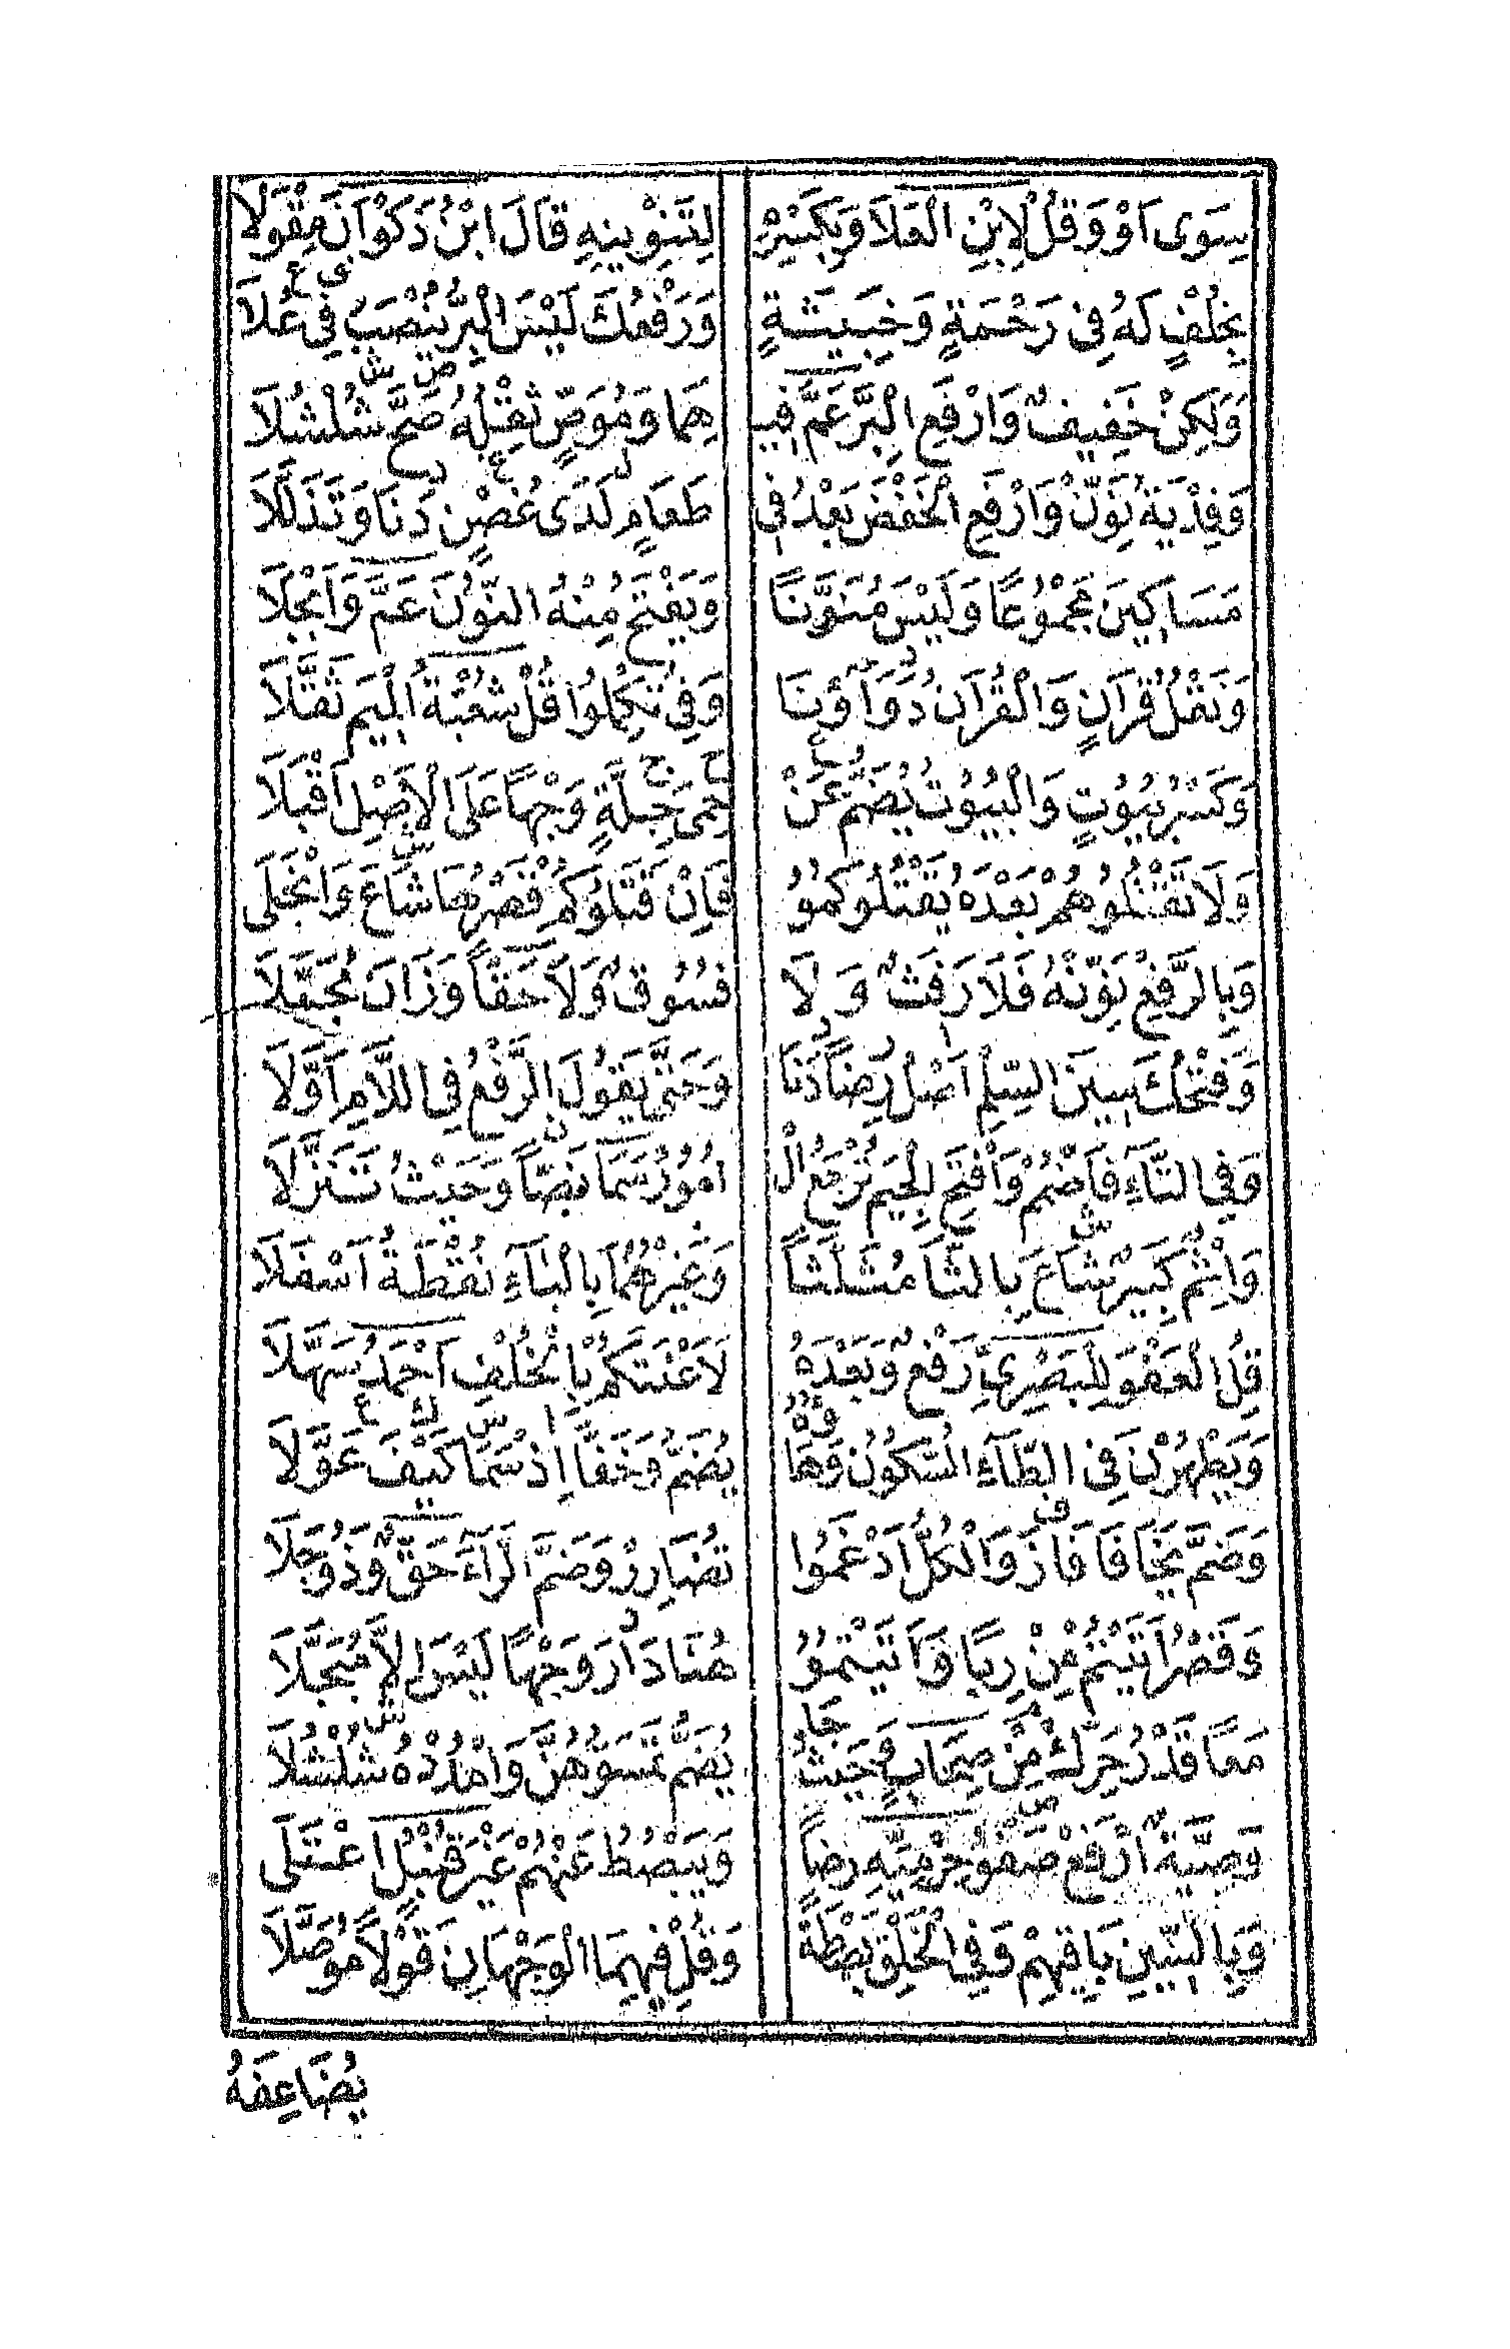 سِوَى اَوْ وَقُلْ لِابْنِ الْعَلَا وَبِكَسْرِهٖ لِتَنْوِينِهٖ قَالَ ابْنُ ذَكْوَانَ مِقْوَلَا
بِخُلْفٍ لَهُ فِى رَحْمَةٍ وَخَبِيثَةٍ وَرَفْعُكَ لَيْسَ الْبِرُّ يُنْصَبُ فِى عُلَا
وَلٰكِنْ خَفِيفٌ وَارْفَعِ الْبِرَّ عَمَّ فِيـ ـهِمَا وَمُوَصٍّ ثِقْلُهُ صَحَّ شُلْشُلَا
وَفِدْيَةُ نَوِّنْ وَارْفَعِ الْخَفْضَ بَعْدُ فِى طَعَامٍ لَدَى غُصْنٍ دَنَا وَتَذَلَّلَا
مَسَاكِينَ مَجْمُوعًا وَلَيْسَ مُنَوَّنًا وَيُفْتَحُ مِنْهُ النُّونُ عَمَّ وَاَبْجَلَا
وَنَقْلُ قُرَانٍ وَالْقُرَانِ دَوَاؤُنَا وَفِى تُكْمِلُوا قُلْ شُعْبَةُ الْمِيمَ ثَقَّلَا
وَكَسْرُ بُيُوتٍ وَالْبُيُوتَ يُضَمُّ عَنْ حِمَى جِلَّةٍ وَجْهًا عَلَى الْاَصْلِ اَقْبَلَا
وَلَا تَقْتُلُوهُمْ بَعْدَهُ يَقْتُلُوكُمُو فَاِنْ قَتَلُوكُمْ قَصْرُهَا شَاعَ وَانْجَلَى
وَبِالرَّفْعِ نَوِّنْهُ فَلَا رَفَثٌ وَلَا فُسُوقٌ وَلَا حَقًّا وَزَانَ مُجَمَّلَا
وَفَتْحُكَ سِينَ السِّلْمِ اَصْلُ رِضًا دَنَا وَحَتَّى يَقُولَ الرَّفْعُ فِى اللَّامِ اُوِّلَا
وَفِى التَّاءِ فَاضْمُمْ وَافْتَحِ الْجِيمَ تُرْجَعُ الْ اُمُورُ سَمَا نَصًّا وَحَيْثُ تَنَزَّلَا
وَاِثْمٌ كَبِيرٌ شَاعَ بِالثَّا مُثَلَّثًا وَغَيْرُهُمَا بِالْبَاءِ نُقْطَةٌ اَسْفَلَا
قُلِ الْعَفْوَ لِلْبَصْرِىِّ رَفْعٌ وَبَعْدَهُ لَاَعْنَتَكُمْ بِالْخُلْفِ اَحْمَدُ سَهَّلَا
وَيَطْهُرْنَ فِى الطَّاءِ السُّكُونُ وَهَاؤُهُ يُضَمُّ وَخَفَّا اِذْ سَمَا كَيْفَ عَوَّلَا
وَضَمُّ يَخَافَا فَازَ وَالْكُلُّ اَدْغَمُوا تُضَارِرْ وَضَمَّ الرَّاءَ حَقٌّ وَذُو جَلَا
وَقَصْرُ اَتَيْتُمْ مِنْ رِبًا وَاَتَيْتُمُو هُنَا دَارَ وَجْهًا لَيْسَ اِلَّا مُبَجَّلَا
مَعًا قَدْرُ حَرِّكْ مِنْ صِحَابٍ وَحَيْثُ جَا يُضَمُّ تَمَسُّوهُنَّ وَامْدُدْهُ شُلْشُلَا
وَصِيَّةٌ ارْفَعْ صَفْوُ حِرْمِيِّهٖ رِضًا وَيَبْصُطُ عَنْهُمْ غَيْرَ قُنْبُلٍ اعْتَلَى
وَبِالسِّينِ بَاقِيهِمْ وَفِى الْخَلْقِ بَصْطَةً وَقُلْ فِيهِمَا الْوَجْهَانِ قَوْلًا مُوَصَّلَا
يُضَاعِفَهُ